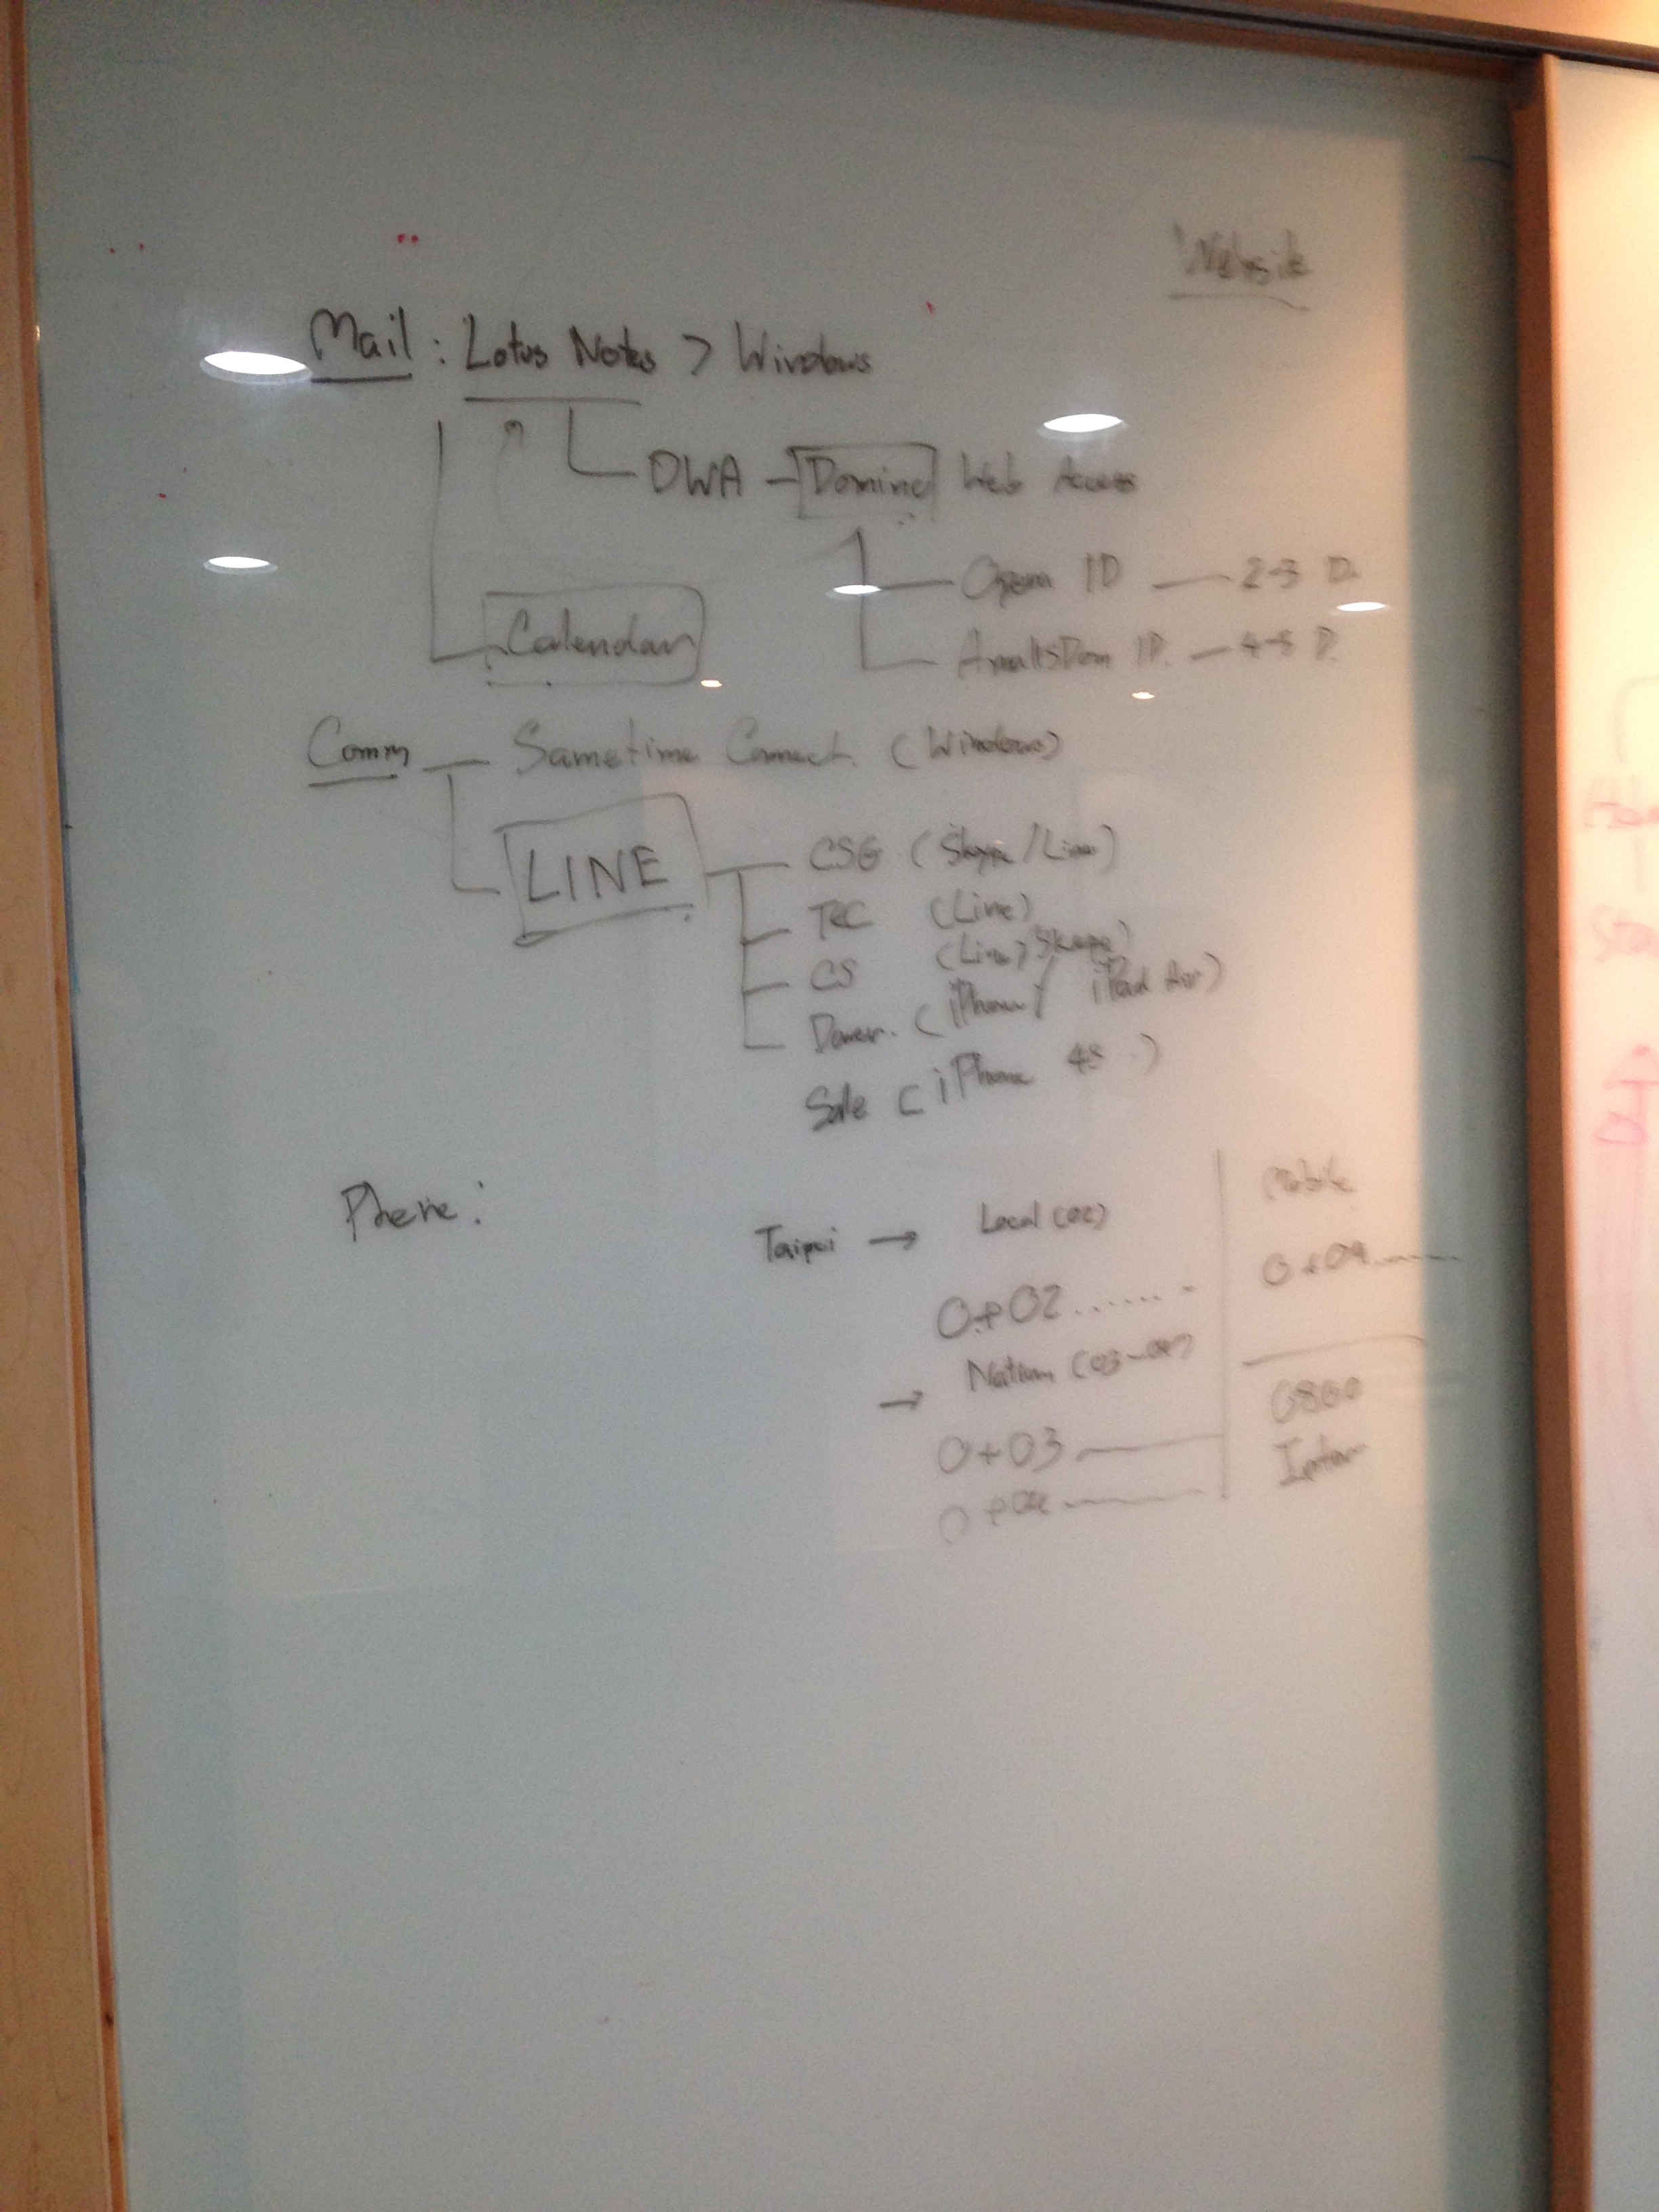 Website
Mail : Lotus Notes > Windows
DWA - Domino Web Access
Open ID — 2-3 D.
ID. — 4-5 D.
Calendar
Comm — Sametime Connect. (Windows)
LINE
CSG (Skype/Line)
TRC (Line)
CS (Line/Skype)
(iPhone/ iPad Air)
Sale (iPhone 4S)
Phone:
Taipei → Local (02)
0+02.......
→ Nation
0+03 —
0+04 —
Mobile
0+09
0800